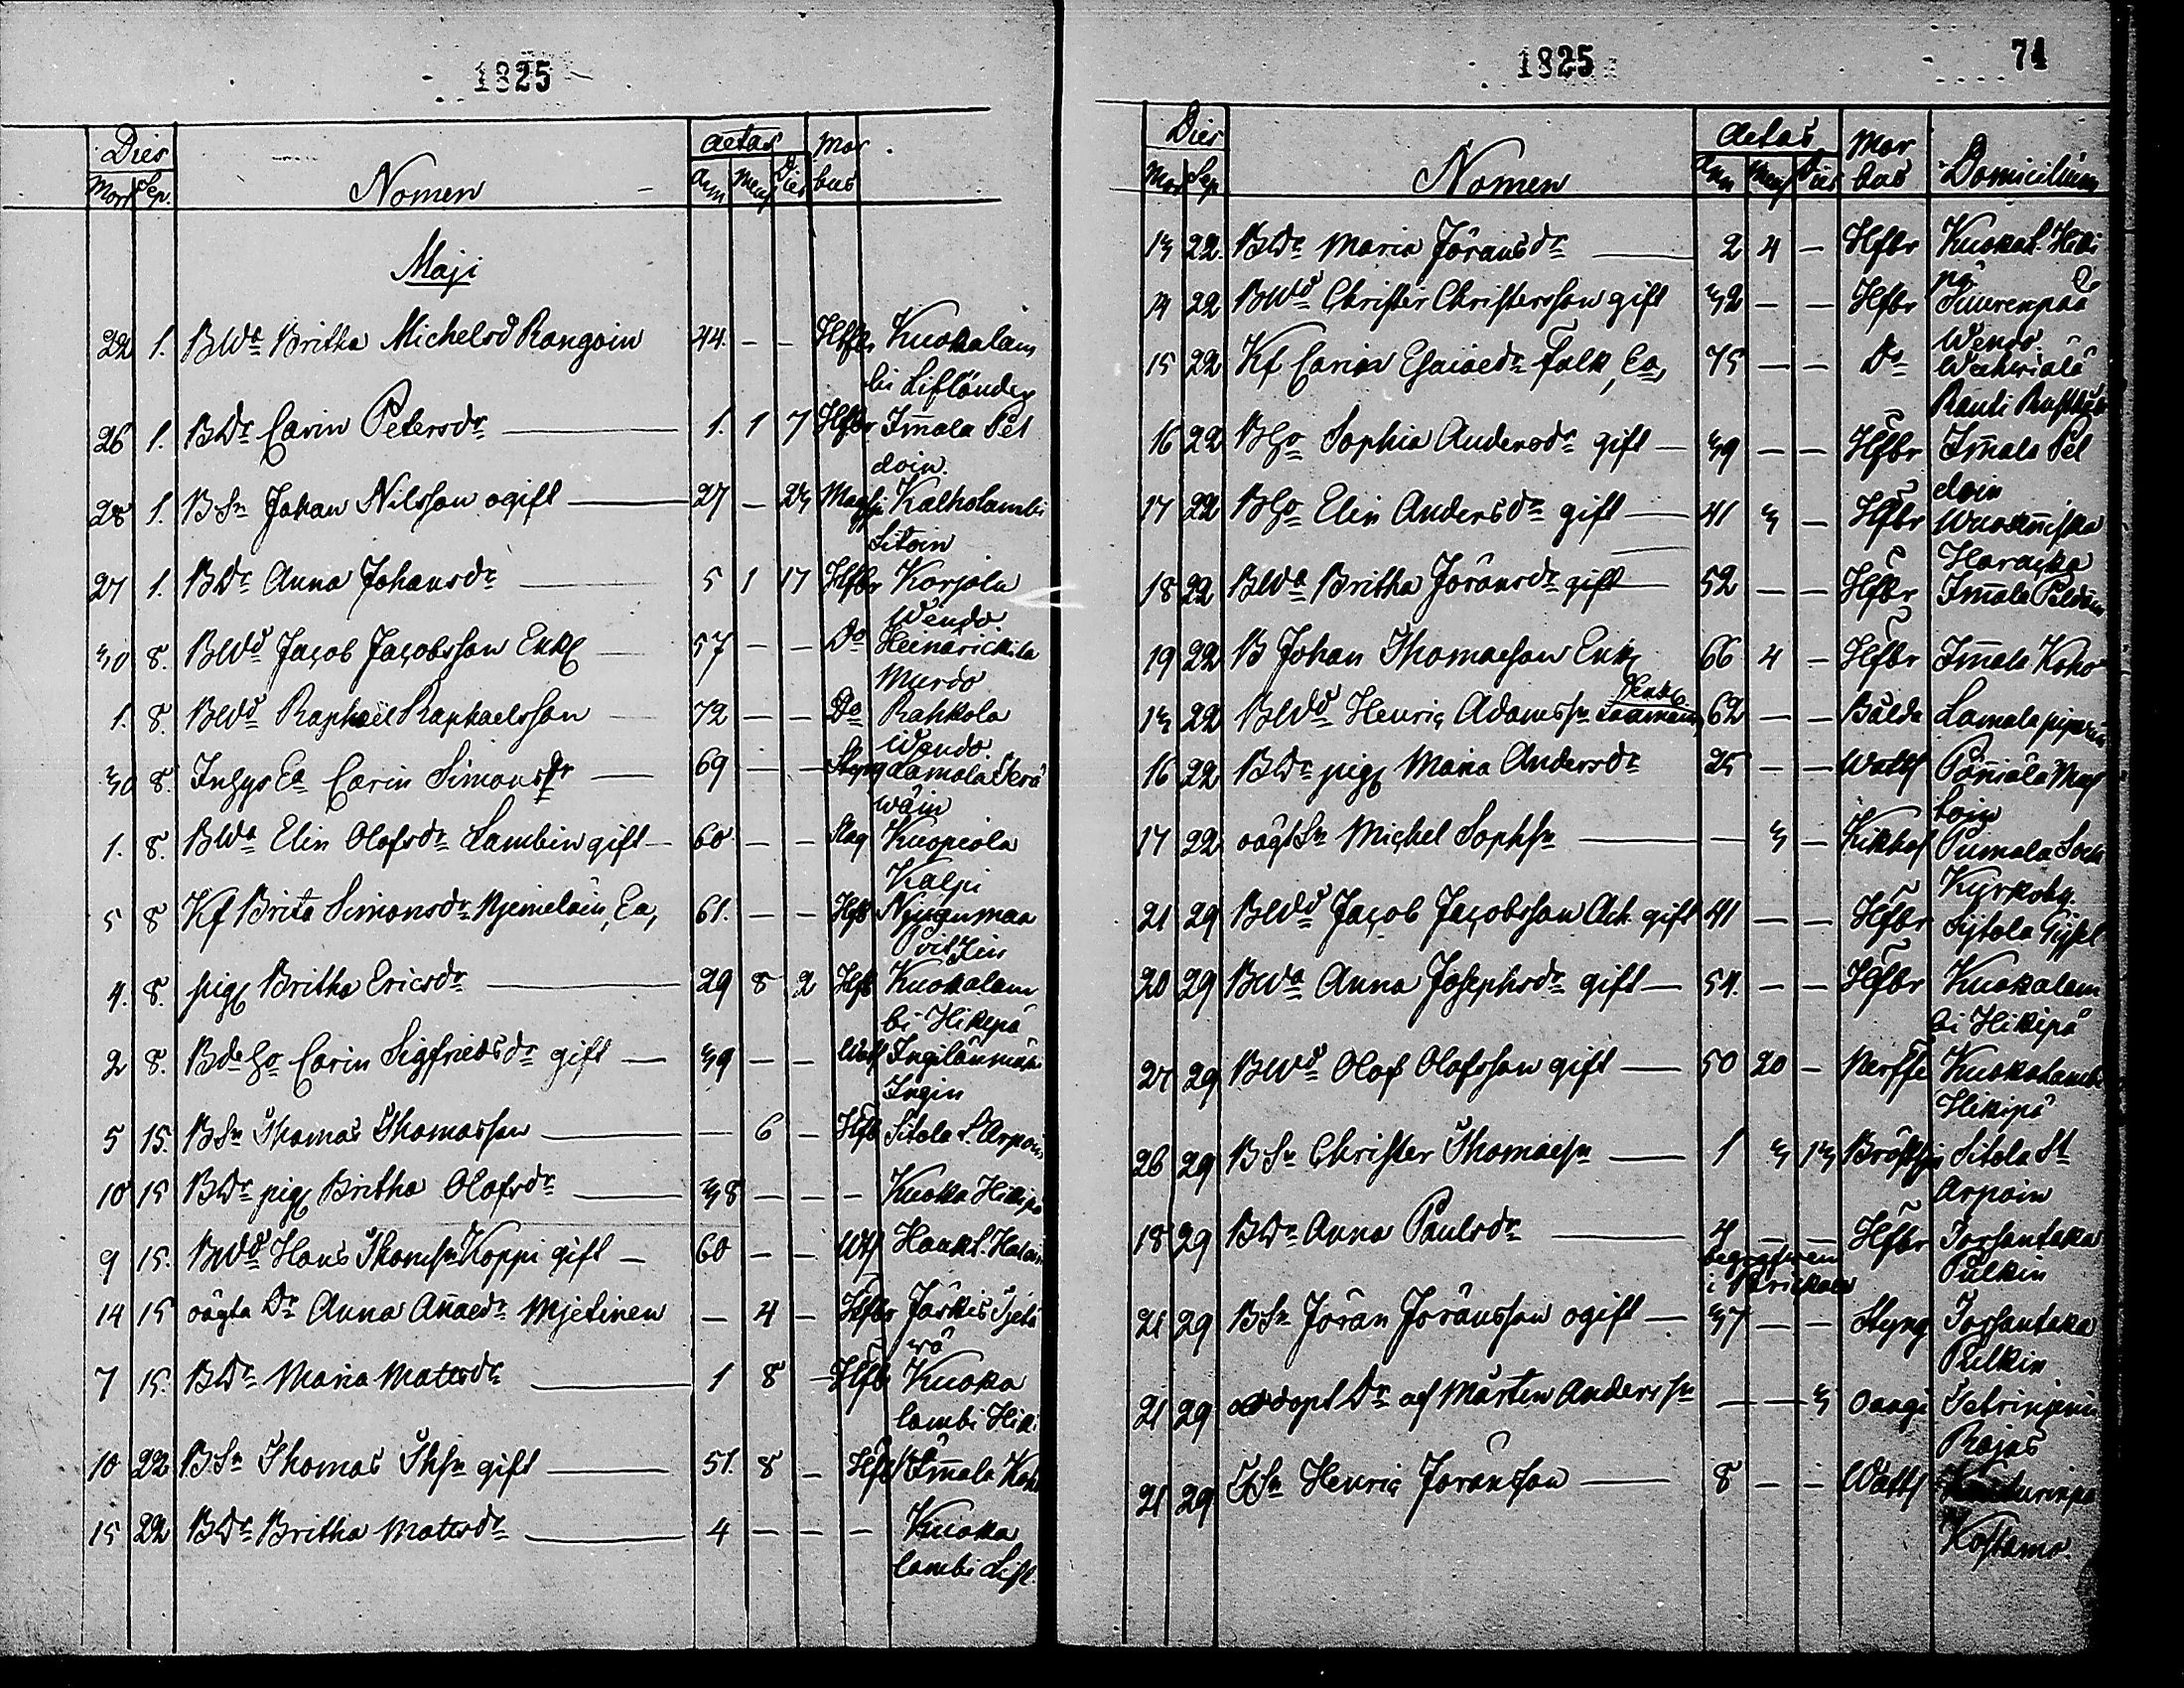 1825
Dies Nomen aetas Mor
Mor Sep. Ann Mens Dies bus
Maji
22 1. BWa Britha Michelsd Rongoin 44. - - Hfbr Kuokalam
bi Lifländer
26 1. BDr Carin Petersdr 1. 1 7 Hfbr Im̄ola Pel
doin.
28 1. BSn Johan Nilsson ogift 27 - 23 Kalholambi
Sitoin
27 1. BDr Anna Johansdr 5 1 17 Hfbr Korjola
Wendo.
30 8. BWd Jacob Jacobsson Enkl 57 - - Do Heinärickila
Murdo
1. 8. BWd Raphaël Raphaelsson 72 - - Do Rahkola
Wendo.
30 8. Inhys Ea Carin Simonsdr 69 - - Styng Lamola
wäin
1. 8. BWa Elin Olofsdr Lambin gift 60 - - Slag Kuopiola
Kalpi
5 8 Kf Brita Simonsdr Njemeläin, Ea, 61. - - Hfb
4. 8. pig Britha Ericsdr 29 8 2 Hfb Kuokalam
bi Hikipä
2 8. Carin Sigfriedsdr gift 39 - - Ingilänmäki
Ingin
5 15. BSn Thomas Thomasson - 6 - Hfb Sitola L. Arpoin
10 15 BDr pig Britha Olofsdr 38 - - - Kuoka Hikipä
9 15. BWd Hans Thomsn Koppi gift 60 - - Wtf Haukl. Hatain
14 15 oägta Dr Anna An̄aedr Mjetinen - 4 - Hfbr Järkis
7 15. BDr Maria Matsdr 1 8 - Hfbr Kuoka
lambi Hiki
10 22 BSn Thomas Thsn gift 51. 8 - Hfb Im̄ola Koho
15 22 BDr Britha Matsdr 4 - - - Kuoka
lambi Lifl.
1825 74
Dies Nomen Aetas Mor Domicilium
Mor Sep Ann Mens Dies bus
13 22. BDr Maria Jöransdr 2 4 - Hfbr Kuokal. Hiki
pä
14 22 BWd Christer Christersson gift 32 - - Hfbr Suurenpää
Wendo
15 22 Kf Carin Esaiaedr Falk, Ea, 75 - - Do
Rauti
16 22 BHo Sophia Andersdr gift 39 - - Hfbr Im̄ola Pel
doin
17 22 BHo Elin Andersdr gift 41 3 - Hfbr Wuoxen̄iska
Haracka
18 22 BWa Britha Jöransdr gift 52 - - Hfbr Im̄ola Peldoin
19 22 B Johan Thomaeson Enkl 66 4 - Hfbr Im̄ola Koho
13 22 BWd Henric Adamssn Enkl 62 - - Bälda Lamola
16 22 BDr pig Maria Andersdr 25 - - Wattf Pän̄iälä
toin
17 22 oägt Sn Michel Sophsn - 3 - Kikhos Pumala Sock
Kyrkoby.
21 29 BWd Jacob Jacobsson Ack gift 41 - - Hfbr Sijtola
20 29 BWa Anna Josephsdr gift 54. - - Hfbr Kuokalam
bi Hikipä
27 29 BWd Olof Olofsson gift 50 20 - Kuokalambi
Hikipä
26 29 BSn Christer Thomaesn 1 3 13 Sitola St
Arpoin
18 29 BDr Anna Paulsdr 4 - - Hfbr Torsantaka
begrafwen Pulkin
i
21 29 BSn Jöran Jöransson ogift 37 - - Styng Torsantaka
Pulkin
21 29 odöpt Dr af Mårten Anderssn - - 3 Oangi
Rajas
21 29 Henric Jöransson 8 - - Wattf
Kostamo.